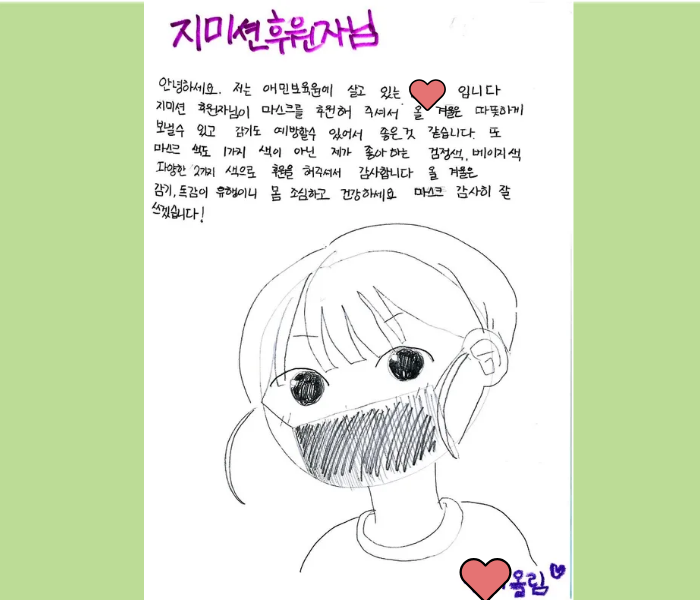 지미션후원자님
안녕하세요. 저는 애민보육원에 살고 있는 입니다
지미션 후원자님이 마스크를 후원허 주셔서 올 겨울은 따뜻하게
보낼수 있고 감기도 예방할수 있어서 좋은것 같습니다. 또
마스크 색도 1가지 색이 아닌 제가 좋아하는 검정색, 베이지색
다양한 2가지 색으로 후원을 허주셔서 감사합니다 올 겨울은
감기, 독감이 유행이니 몸 조심하고 건강하세요 마스크 감사히 잘
쓰겠습니다!
올림